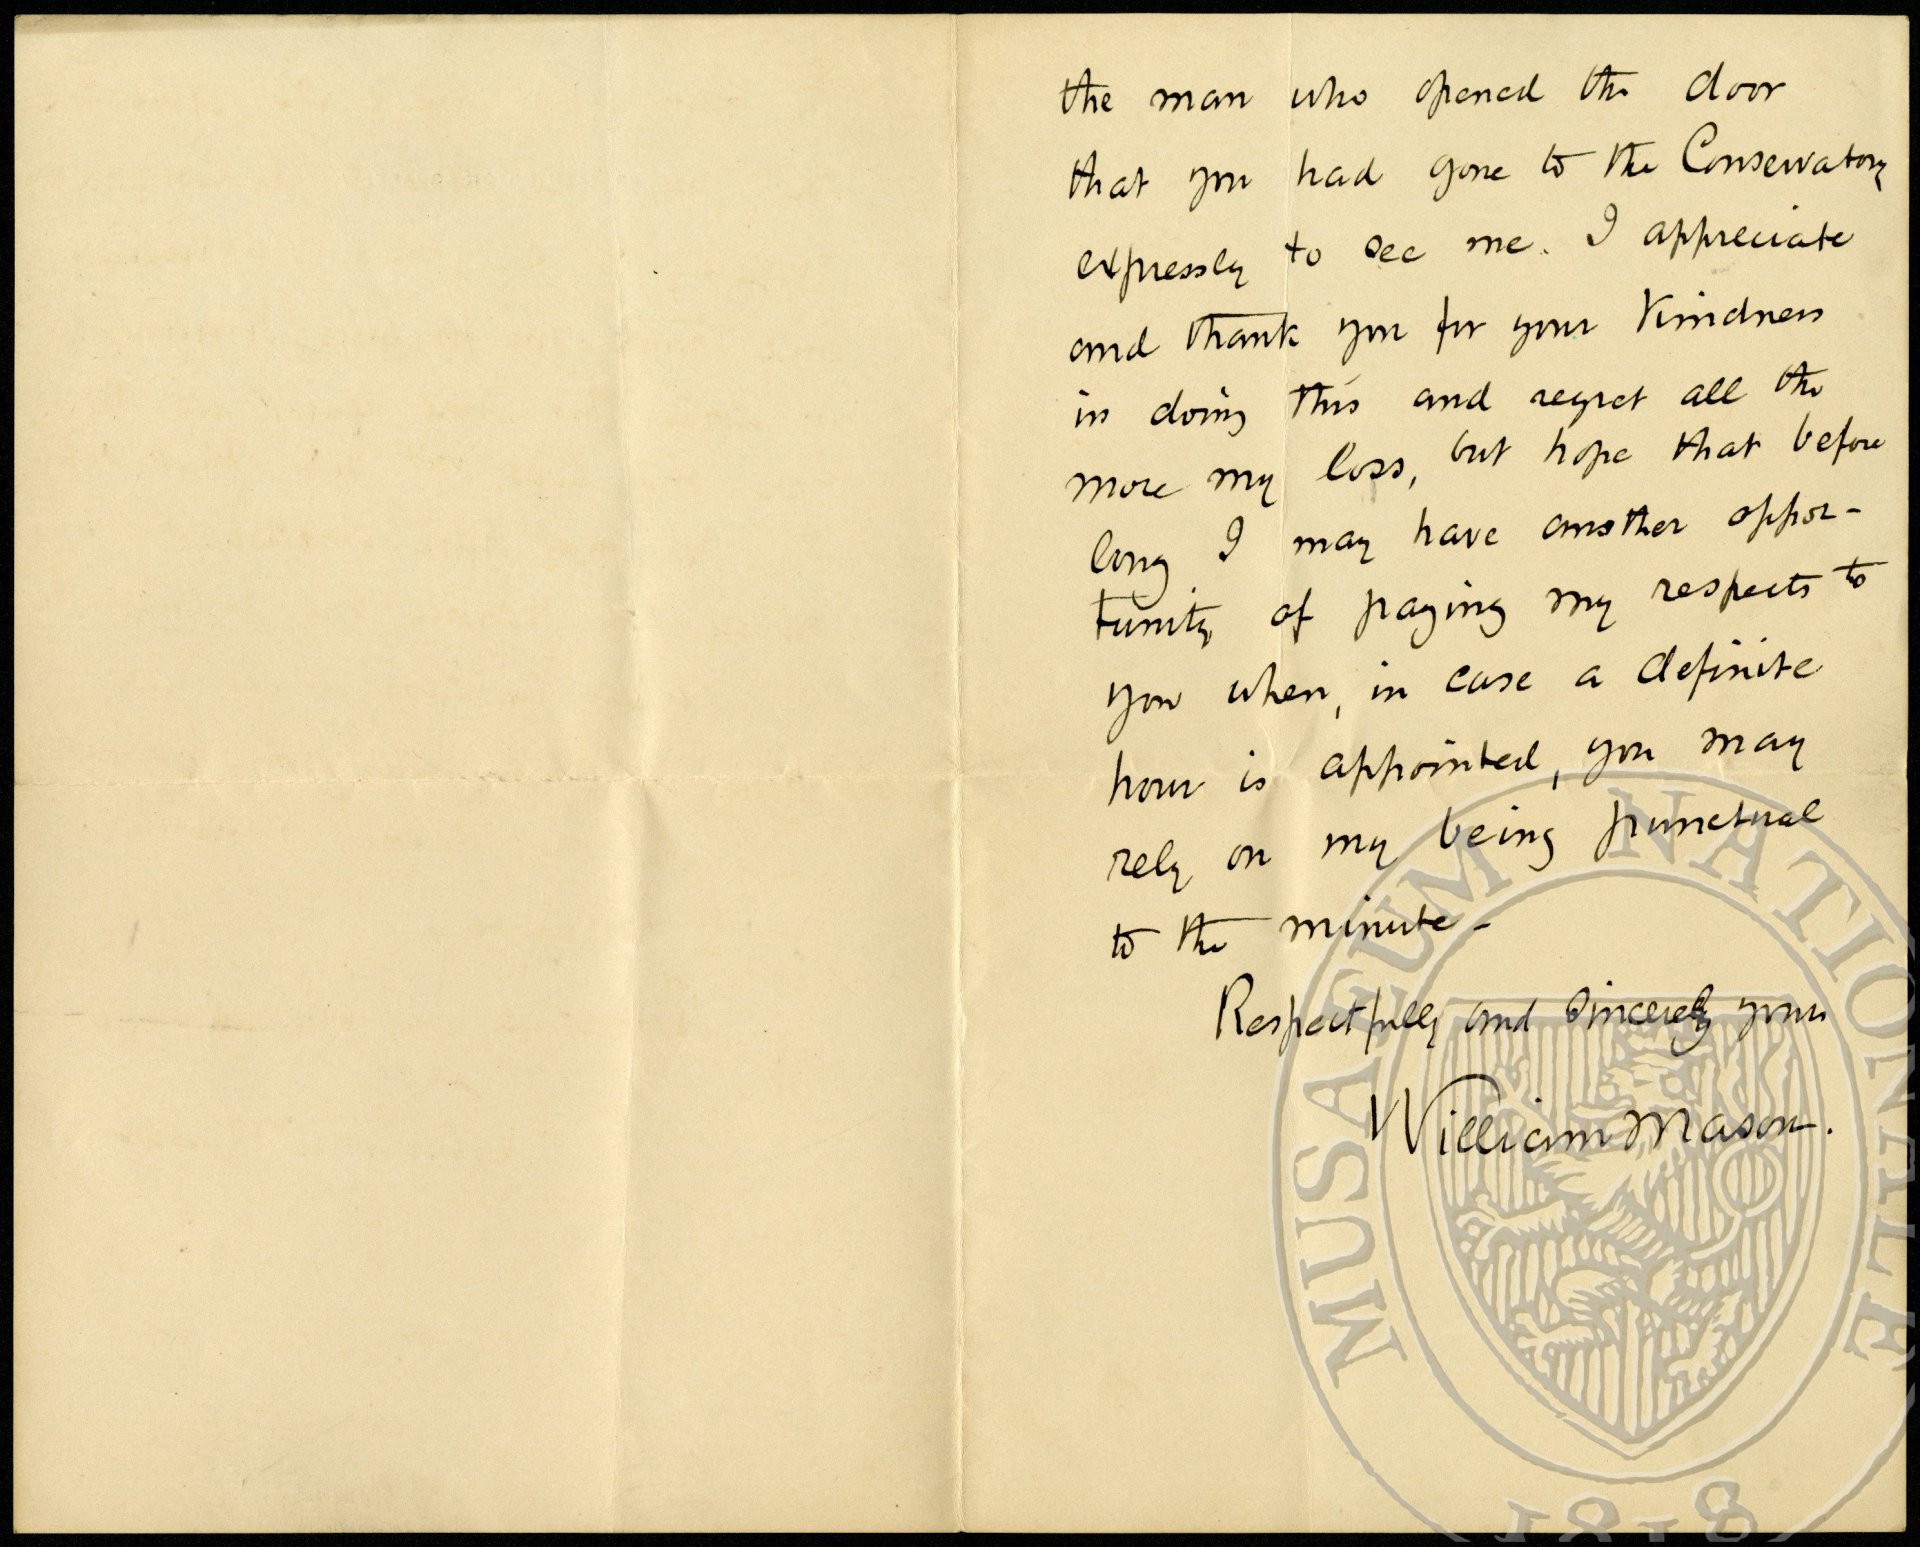 the man who opened the door
that you had gone to the Conservatory
expressly to see me. I appreciate
and thank you for your kindness
in doing this and regret all the
more my loss, but hope that before
long I may have another oppor-
tunity of paying my respects to
you when, in case a definite
hour is appointed, you may
rely on my being punctual
to the minute -
Respectfully and sincerely yours
William Mason.
MUSAEUM NATIONALE
1818